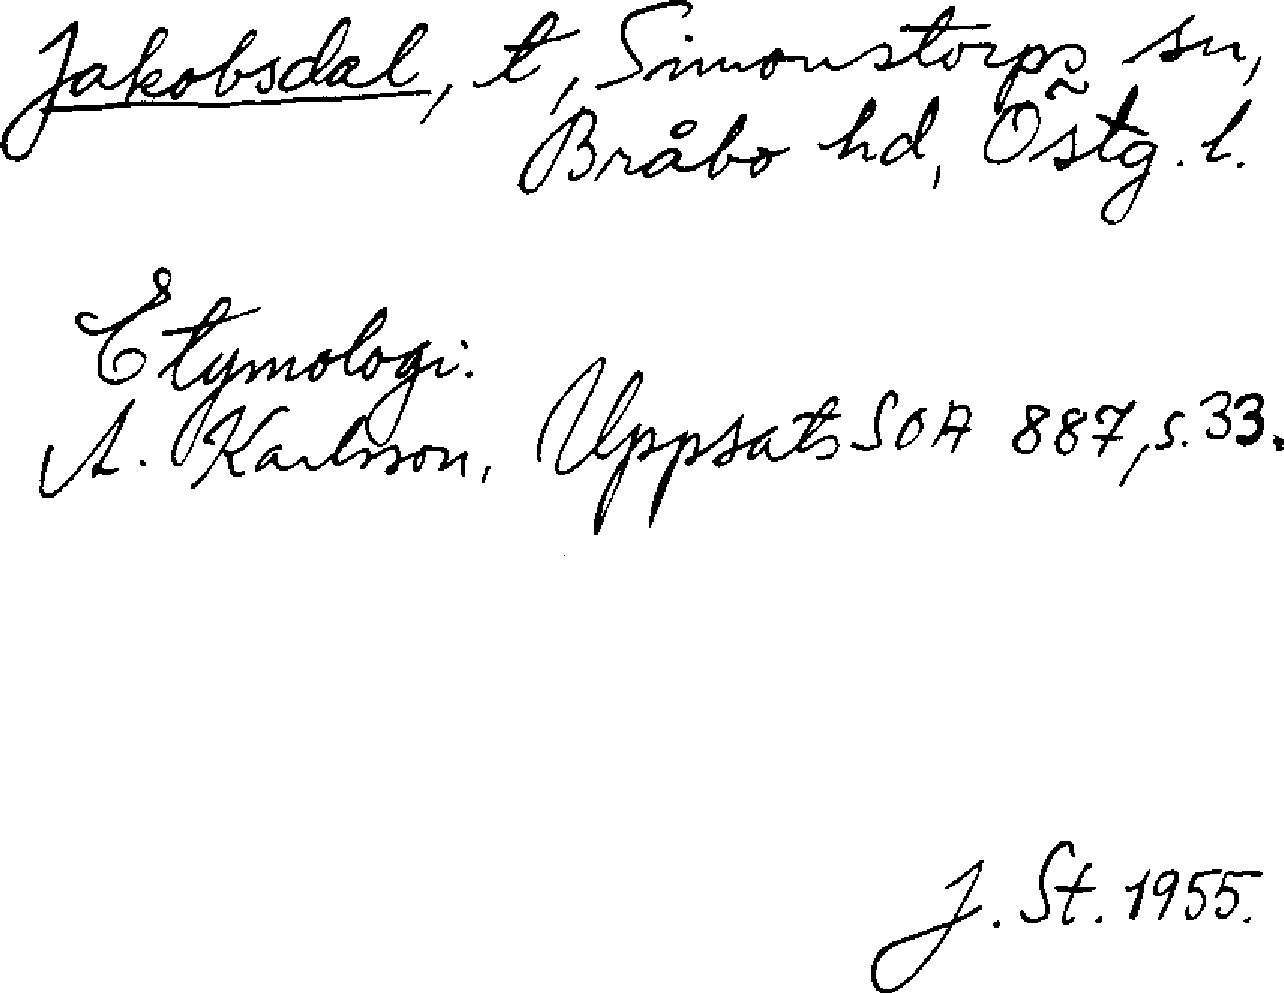 Jakobsdal, t, Simonstorps sn,
Bråbo hd, Östg. l.
Etymologi:
A. Karlsson, Uppsats SOA 887, s. 33.
J. St. 1955.